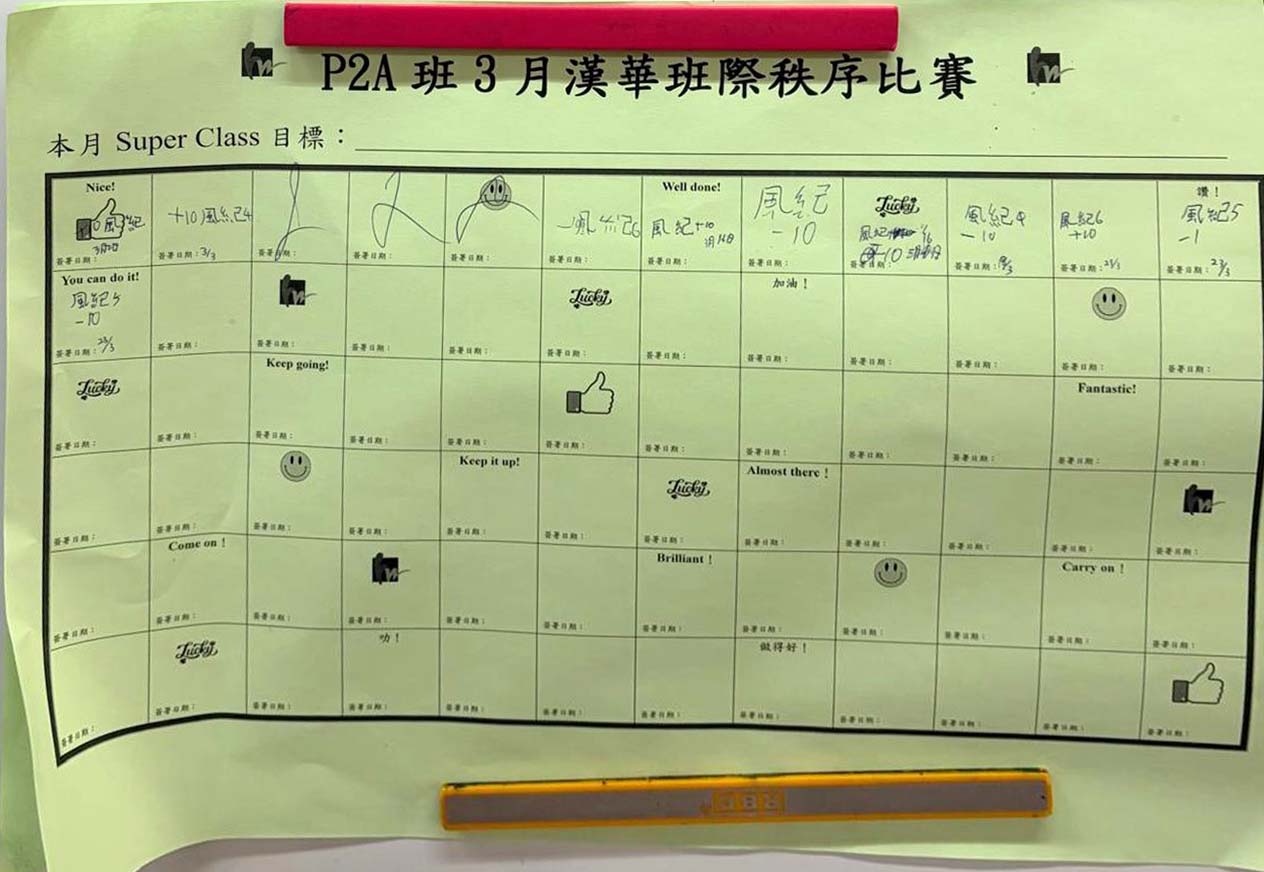 P2A 班 3 月漢華班際秩序比賽
本月 Super Class 目標：
Nice! Well done! Lucky 讚！
風紀 +10風紀4 風紀6 風紀+10 風紀 風紀 風紀4 風紀6 風紀5
3月16日 -10 -10 -10 +10 -1
簽署日期： 簽署日期：3/3 簽署日期： 簽署日期： 簽署日期： 簽署日期： 簽署日期： 簽署日期： 簽署日期： 簽署日期： 簽署日期：23/3 簽署日期：23/3
You can do it! Lucky 加油！
風紀5
-10
簽署日期：23/3 簽署日期： 簽署日期： 簽署日期： 簽署日期： 簽署日期： 簽署日期： 簽署日期： 簽署日期： 簽署日期： 簽署日期： 簽署日期：
Lucky Keep going! Fantastic!
簽署日期： 簽署日期： 簽署日期： 簽署日期： 簽署日期： 簽署日期： 簽署日期： 簽署日期： 簽署日期： 簽署日期： 簽署日期： 簽署日期：
Keep it up! Lucky Almost there！
簽署日期： 簽署日期： 簽署日期： 簽署日期： 簽署日期： 簽署日期： 簽署日期： 簽署日期： 簽署日期： 簽署日期： 簽署日期： 簽署日期：
Come on！ Brilliant！ Carry on！
簽署日期： 簽署日期： 簽署日期： 簽署日期： 簽署日期： 簽署日期： 簽署日期： 簽署日期： 簽署日期： 簽署日期： 簽署日期： 簽署日期：
Lucky 叻！ 做得好！
簽署日期： 簽署日期： 簽署日期： 簽署日期： 簽署日期： 簽署日期： 簽署日期： 簽署日期： 簽署日期： 簽署日期： 簽署日期： 簽署日期：